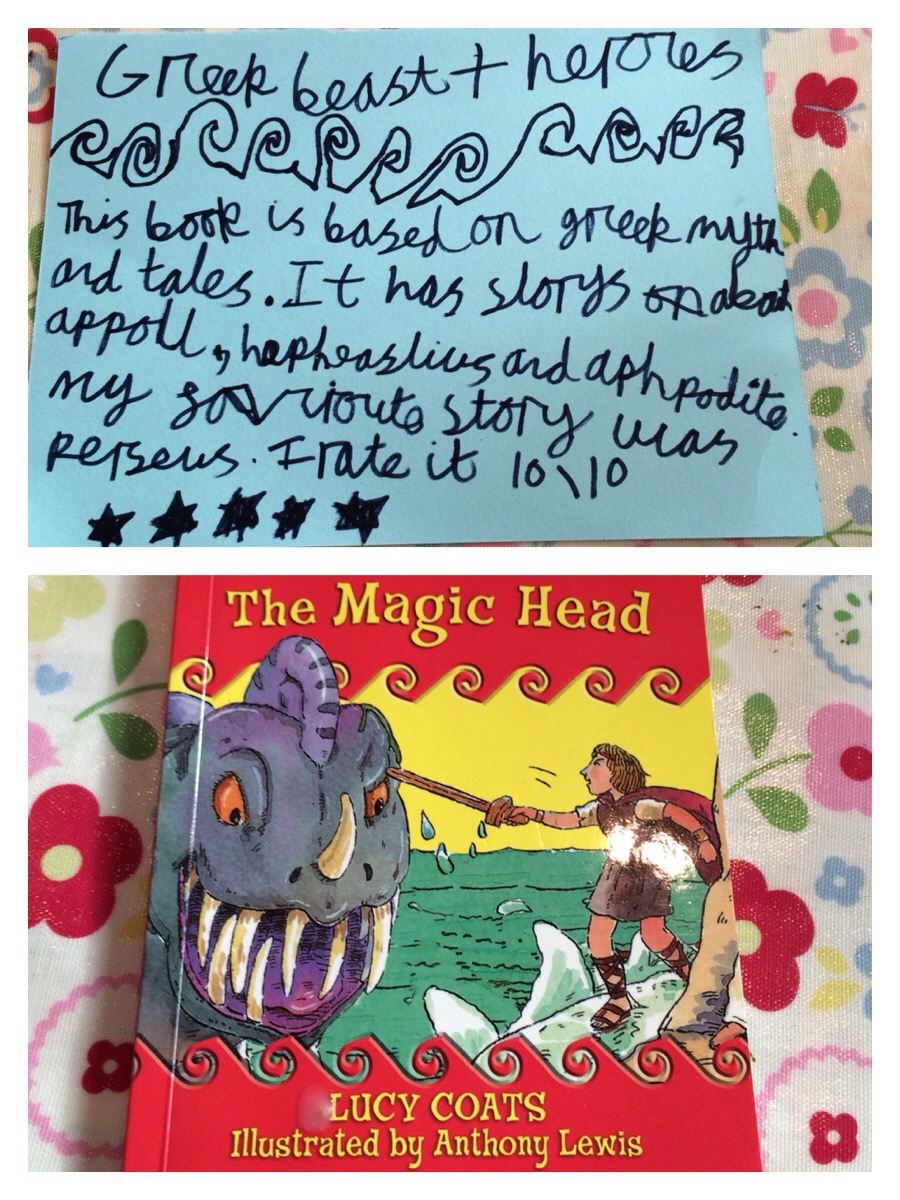 Greek beast + heroes
This book is based on greek myth
and tales. It has storys on about
appoll, hapheastius and aphrodite.
my favrioute story was
perseus. I rate it 10\10
The Magic Head
LUCY COATS
Illustrated by Anthony Lewis